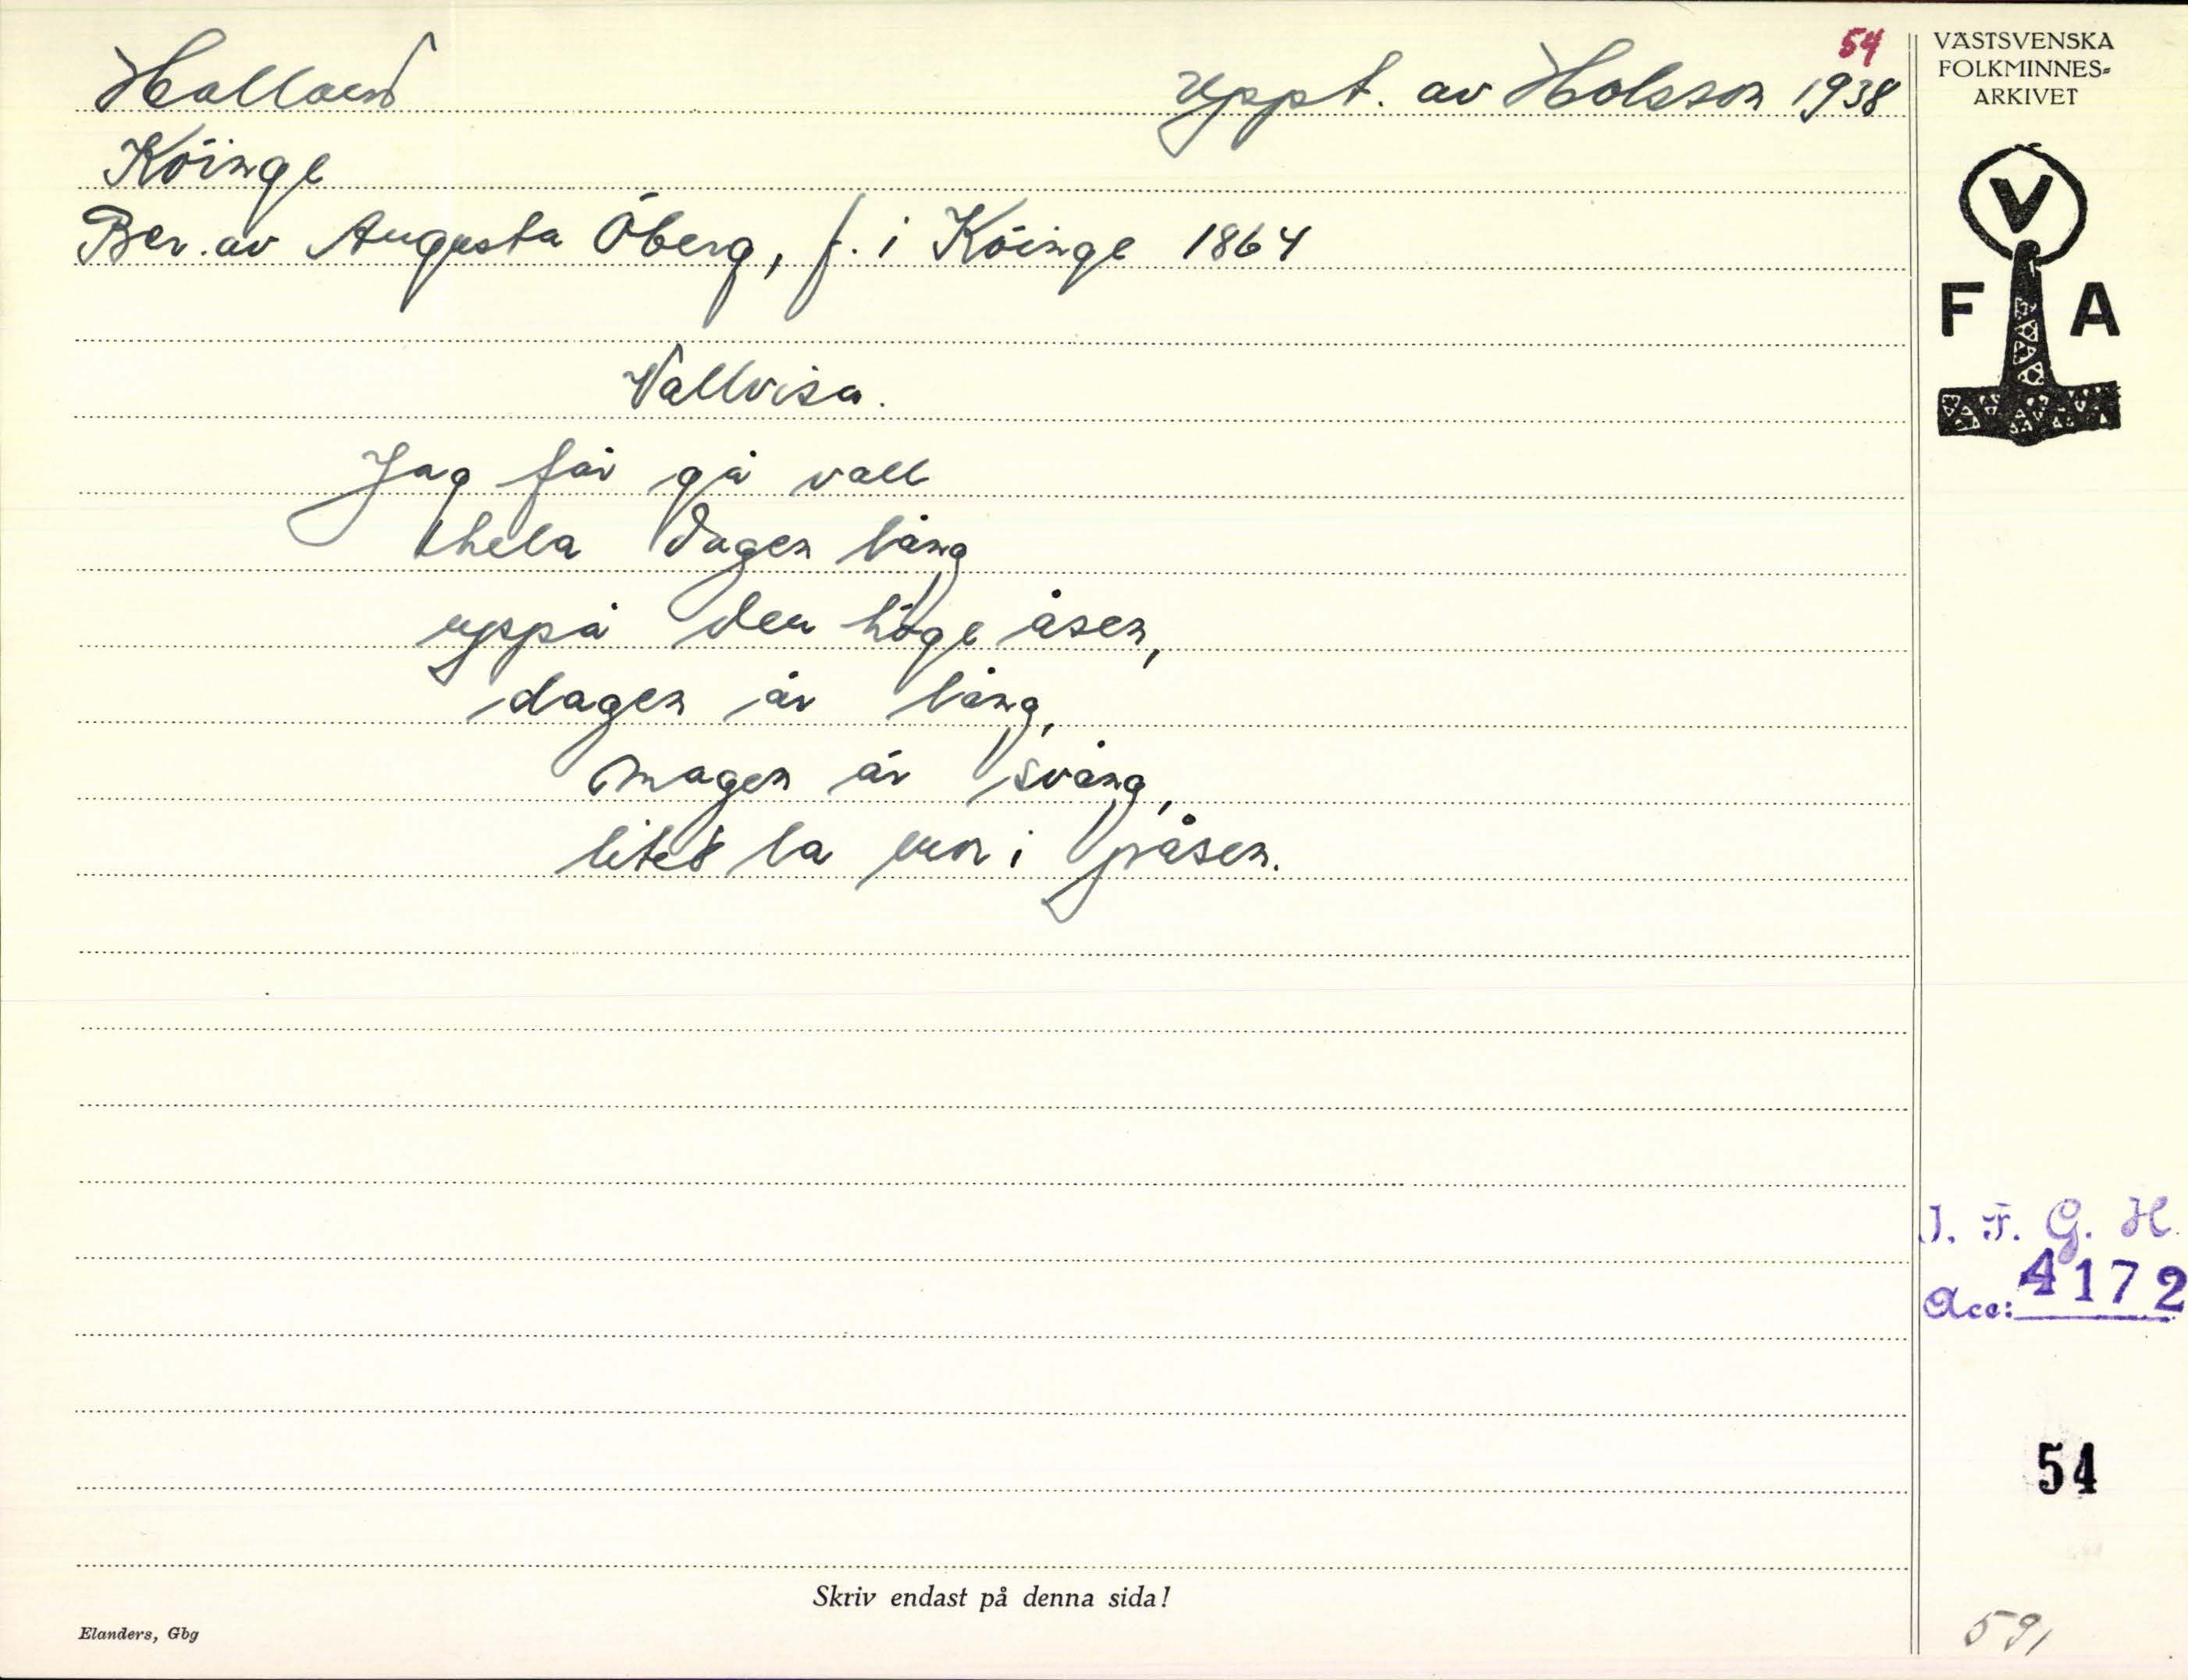 Halland
Uppt. av Holsson 1938
54
Köinge
Ber. av Augusta Öberg, f. i Köinge 1864
Vallvisa.
Jag får gå vall
hela dagen lång
uppå den höge åsen,
dagen är lång,
magen är svång,
litet la mor i påsen.
Skriv endast på denna sida!
Elanders, Gbg
VÄSTSVENSKA
FOLKMINNES-
ARKIVET
V
F A
I. F. G. H.
Acc: 4172
54
591